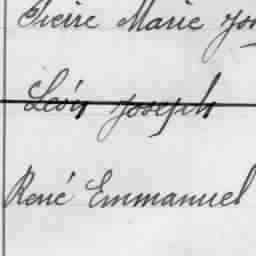 Pierre Marie Jos
Léon Joseph
René Emmanuel